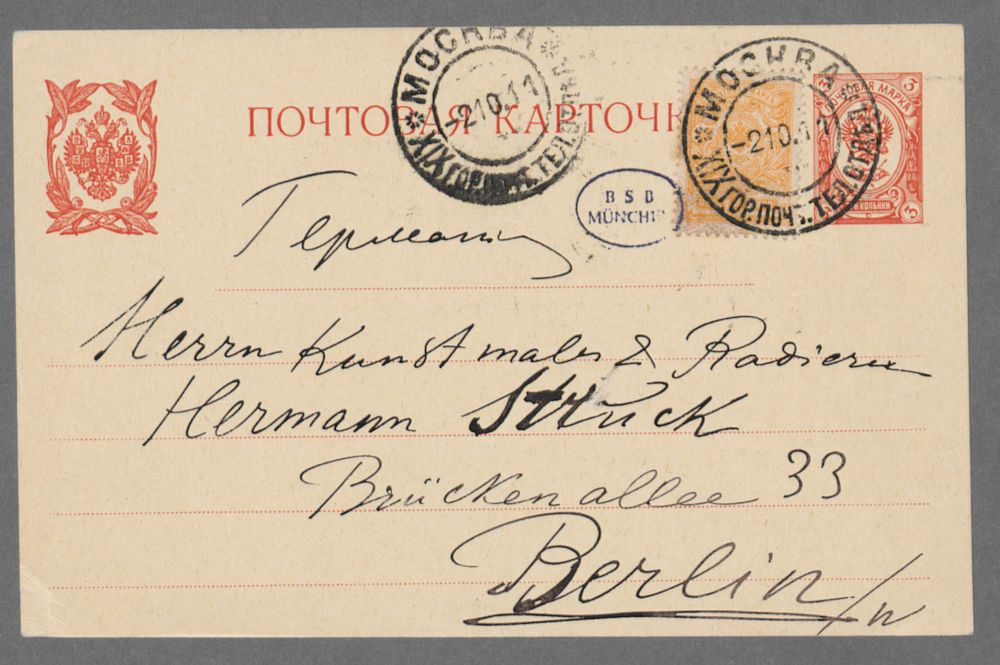 ПОЧТОВАЯ КАРТОЧК
МОСКВА
-2.10.11
XIX ГОР. ПОЧТ. ТЕЛ.
МОСКВА
-2.10.11
XIX ГОР. ПОЧТ. ТЕЛ. ОТД.
МАРКА
3
3
3
BSB
MÜNCHEN
Германия
Herrn Kunstmaler & Radierer
Hermann Struck
Brückenallee 33
Berlin /n